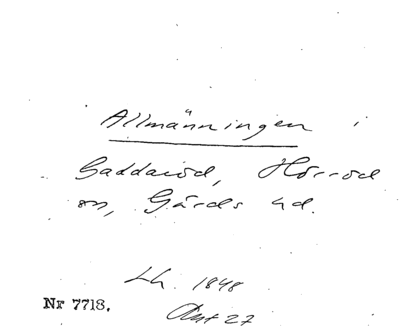 Allmänningen i
Gaddaröd, Hörröd
sn, Gärds hd.
Lh. 1848
Akt 27
Nr 7718.